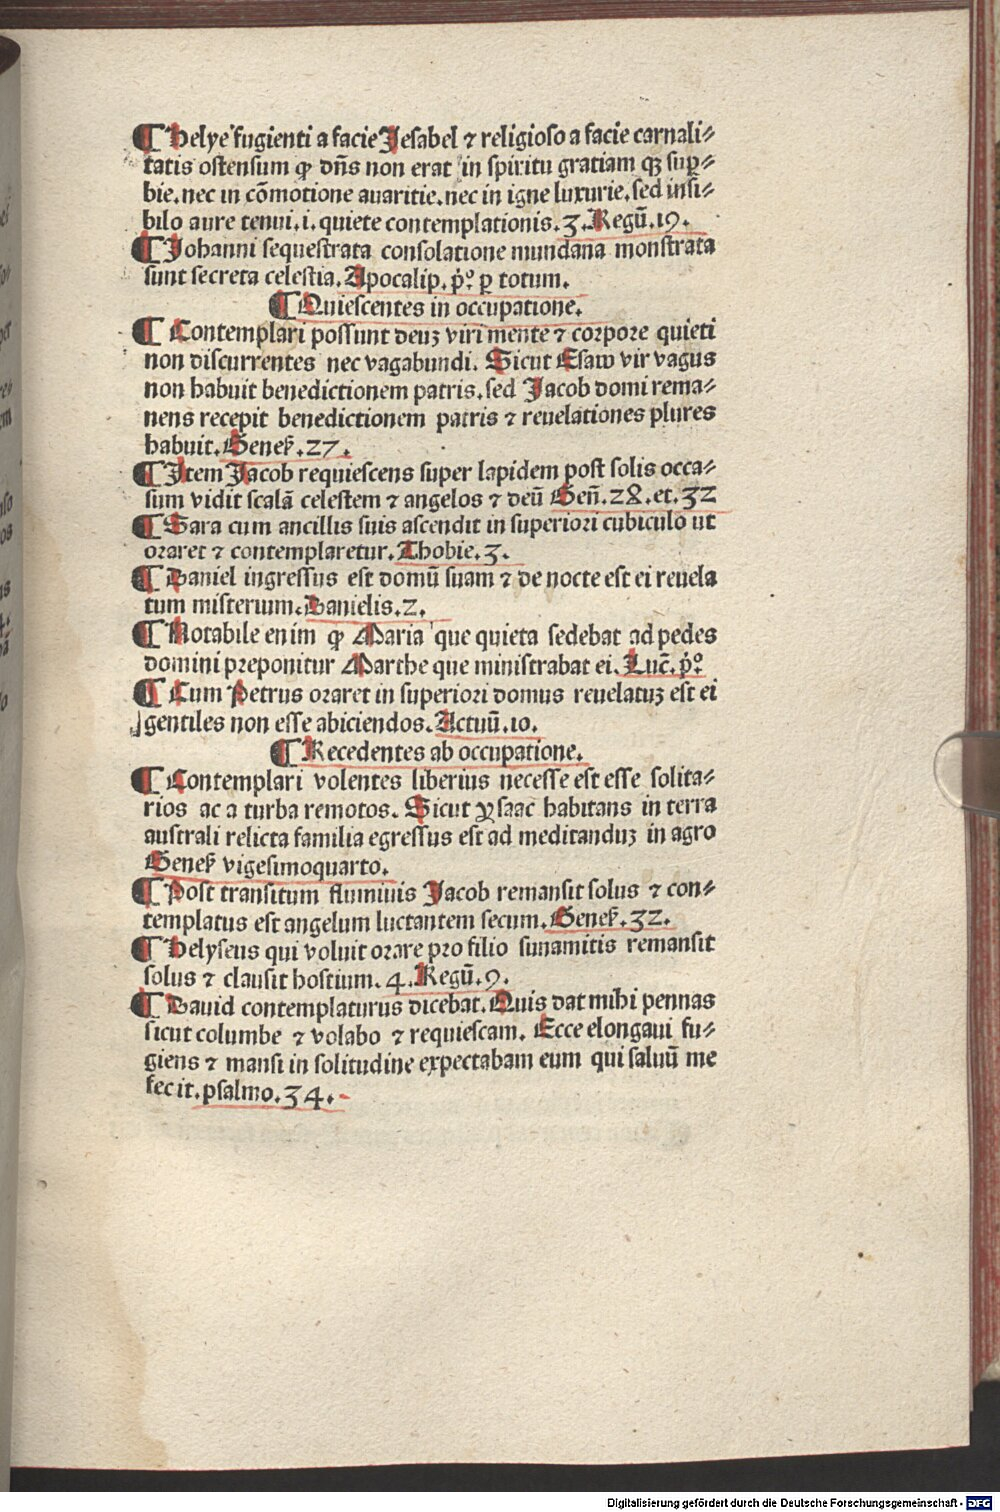 ¶ Helye fugienti a facie Jesabel ⁊ religioso a facie carnali⸗
tatis ostensum ꝙ dn̄s non erat in spiritu gratiam qꝫ suꝑ⸗
bie.nec in cōmotione auaritie.nec in igne luxurie.sed insi⸗
bilo aure tenui.i.quiete contemplationis.3.Regū.19.
¶ Johanni sequestrata consolatione mundana monstrata
sunt secreta celestia.Apocalip.p̊.ꝑ totum.
¶ Quiescentes in occupatione.
¶ Contemplari possunt deuꝫ viri mente ⁊ corpore quieti
non discurrentes nec vagabundi. Sicut Esaw vir vagus
non habuit benedictionem patris.sed Jacob domi rema⸗
nens recepit benedictionem patris ⁊ reuelationes plures
habuit.Geneẜ.27.
¶ Item Jacob requiescens super lapidem post solis occa⸗
sum vidit scalā celestem ⁊ angelos ⁊ deū Gen̄.28.et.32
¶ Sara cum ancillis suis ascendit in superiori cubiculo ut
oraret ⁊ contemplaretur.Thobie.3.
¶ Daniel ingressus est domū suam ⁊ de nocte est ei reuela
tum misterium.Danielis.2.
¶ Notabile enim ꝙ Maria que quieta sedebat ad pedes
domini preponitur Marthe que ministrabat ei.Luc̄.p̊
¶ Cum Petrus oraret in superiori domus reuelatuꝫ est ei
gentiles non esse abiciendos.Actuū.10.
¶ Recedentes ab occupatione.
¶ Contemplari volentes liberius necesse est esse solita⸗
rios ac a turba remotos. Sicut Ysaac habitans in terra
australi relicta familia egressus est ad meditanduꝫ in agro
Geneẜ vigesimoquarto.
¶ Post transitum fluminis Jacob remansit solus ⁊ con⸗
templatus est angelum luctantem secum.Geneẜ.32.
¶ Helyseus qui voluit orare pro filio sunamitis remansit
solus ⁊ clausit hostium.4.Regū.9.
¶ Dauid contemplaturus dicebat.Quis dat mihi pennas
sicut columbe ⁊ volabo ⁊ requiescam. Ecce elongaui fu⸗
giens ⁊ mansi in solitudine expectabam eum qui saluū me
fecit.psalmo.34.
Digitalisierung gefördert durch die Deutsche Forschungsgemeinschaft - DFG